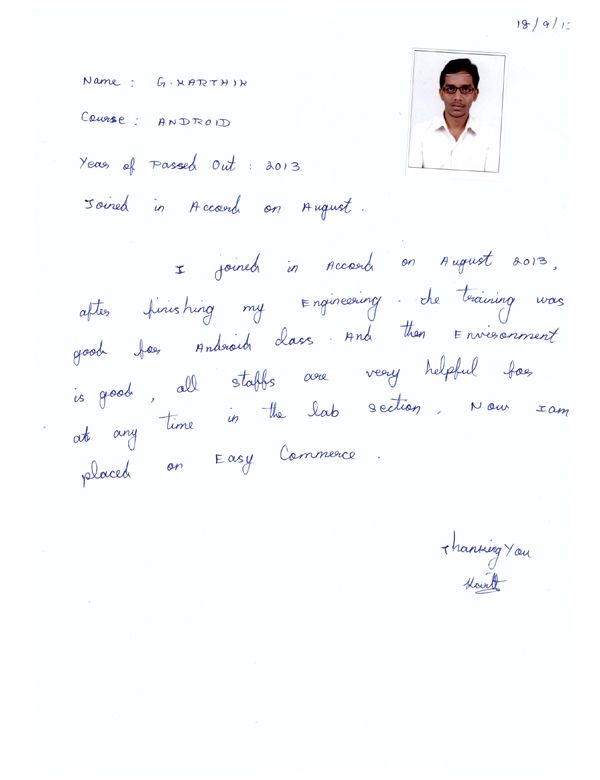 18/9/1
Name : G. KARTHIK
Course : ANDROID
Year of Passed Out : 2013
Joined in Accord on August .
I joined in Accord on August 2013,
after finishing my Engineering . the training was
good for Android class . And then Environment
is good , all staffs are very helpful for
at any time in the lab section . Now I am
placed on Easy Commerce .
Thanking You